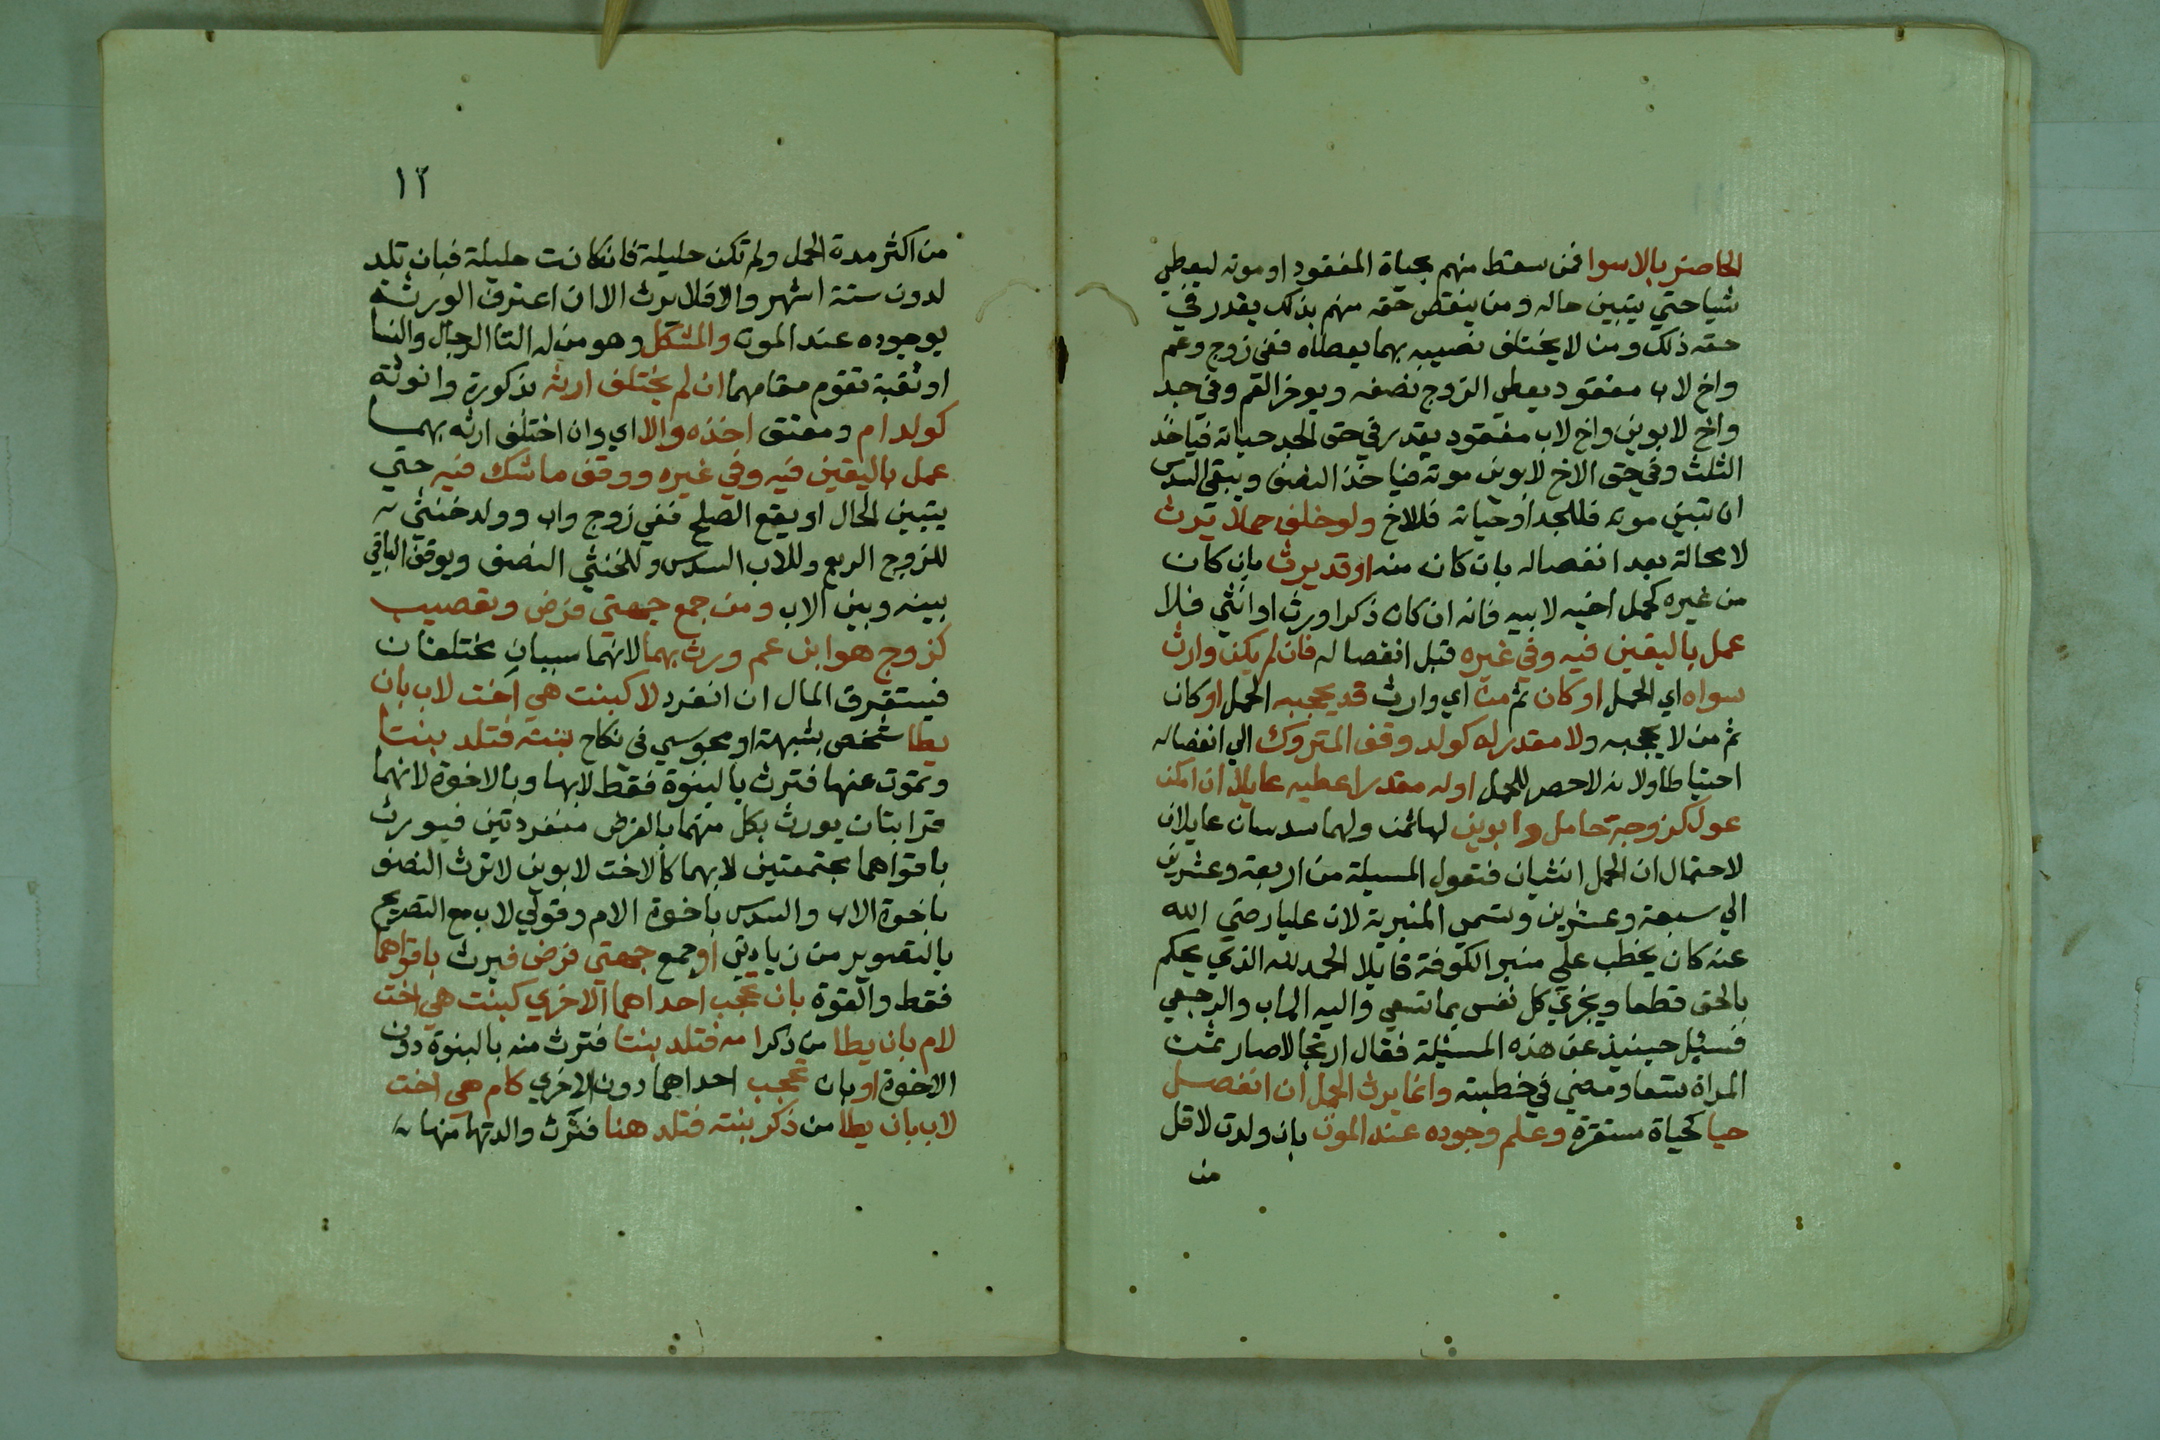 الحاضر بالاسوا فمن سقط منهم بحياة المفقود او موته لم يعطي
شيا حتي يتبين حاله ومن ينقص حقه منهم بذلك يقدر في
حقه ذلك ومن لا يختلف نصيبه بهما يعطاه ففي زوج وعم
واخ لاب مفقود يعطي الزوج نصفه ويوخر العم وفي جد
واخ لابوين واخ لاب مفقود يقدر في حق الجد حياته فياخذ
الثلث وفي حق الاخ لابوين موته فياخذ النصف ويبقي السدس
ان تبين موته فللجد او حياته فللاخ ولو خلف حملا يرث
لا محالة بعد انفصاله بان كان منه او قد يرث بان كان
من غيره كحمل اخيه لابيه فانه ان كان ذكرا ورث او انثي فلا
عمل باليقين فيه وفي غيره قبل انفصاله فان لم يكن وارث
سواه اي الحمل او كان ثم من اي وارث قد يحجبه الحمل او كان
ثم من لا يحجبه ولا مقدر له كولد وقف المتروك الي انفصاله
احتياطا ولانه لا حصر للحمل او له مقدر اعطيه عايلا ان امكن
عول كزوجة حامل وابوين لها ثمن ولهما سدسان عايلان
لاحتمال ان الحمل انثيان فتعول المسيلة من اربعة وعشرين
الي سبعة وعشرين وتسمي المنبرية لان عليا رضي الله
عنه كان يخطب علي منبر الكوفة قايلا الحمد لله الذي يحكم
بالحق قطعا ويجزي كل نفس بما تسعي واليه الماب والرجعي
فسئل حينيذ عن هذه المسئلة فقال ارتجالا صار ثمن
المراة تسعا ومضي في خطبته وانما يرث الحمل ان انفصل
حيا كحياة مستقرة وعلم وجوده عند الموت بان ولدت لاقل
من
١٢
من اكثر مدة الحمل ولم تكن حليلة فان كانت حليلة فبان تلد
لدون ستة اشهر والا فلا يرث الا ان اعترف الورثة
بوجوده عند الموت والمشكل وهو من له التا الرجال والنسا
او ثقبة تقوم مقامهما ان لم يختلف ارثه بذكورة وانوثة
كولد ام ومعتق اخذه والا اي وان اختلف ارثه بهما
عمل باليقين فيه وفي غيره ووقف ما شك فيه حتي
يتبين الحال او يقع الصلح ففي زوج واب وولد خنثي
للزوج الربع وللاب السدس وللخنثي النصف ويوقف الباقي
بينه وبين الاب ومن جمع جهتي فرض وتعصيب
كزوج هو ابن عم ورث بهما لانهما سببان مختلفان
فيستغرق المال ان انفرد لا كبنت هي اخت لاب بان
يطا شخص بشبهة او مجوسي في نكاح بنته فتلد بنتا
وتموت عنها فترث بالبنوة فقط لا بها وبالاخوة لانهما
قرابتان يورث بكل منهما بالفرض منفردتين فيورث
باقواهما مجتمعتين لا بهما كالاخت لابوين لا ترث النصف
باخوة الاب والسدس باخوة الام وقولي لاب مع التصريح
بالتصوير من زيادتي او جمع جهتي فرض فيرث باقواهما
فقط والقوة بان تحجب احداهما الاخري كبنت هي اخت
لام بان يطا من ذكر امه فتلد بنتا فترث منه بالبنوة دون
الاخوة او بان تحجب احداهما دون الاخري كام هي اخت
لاب بان يطا من ذكر بنته فتلد هنا فترث والدتها منها